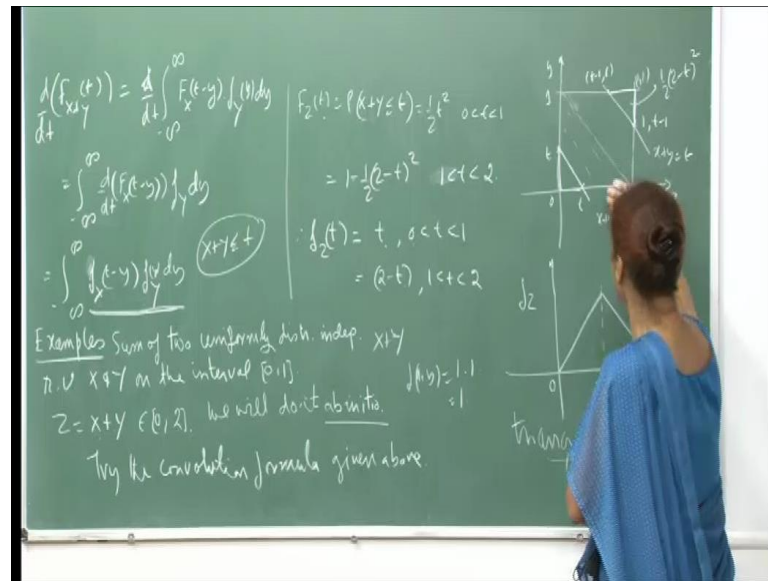 d/dt (f_{x+y}(t)) = d/dt ∫_{-∞}^{∞} F_x(t-y) f_y(y) dy
= ∫_{-∞}^{∞} d/dt (F_x(t-y)) f_y dy
= ∫_{-∞}^{∞} f_x(t-y) f_y(y) dy
x+y≤t
Examples Sum of two uniformly distr. indep.
r.v X & Y on the interval [0,1].
Z = X+Y ∈ [0,2]. We will do it abinitio.
Try the convolution formula given above.
F_Z(t) = P(X+Y≤t) = 1/2 t² 0<t<1
= 1-1/2(2-t)² 1<t<2.
∴ f_Z(t) = t, 0<t<1
= (2-t), 1<t<2
x+y
f(x,y)=1.1
=1
y
1
t
0
t
(t-1,1)
(1,1)
1/2(2-t)²
1,t-1
x+y=t
f_Z
0